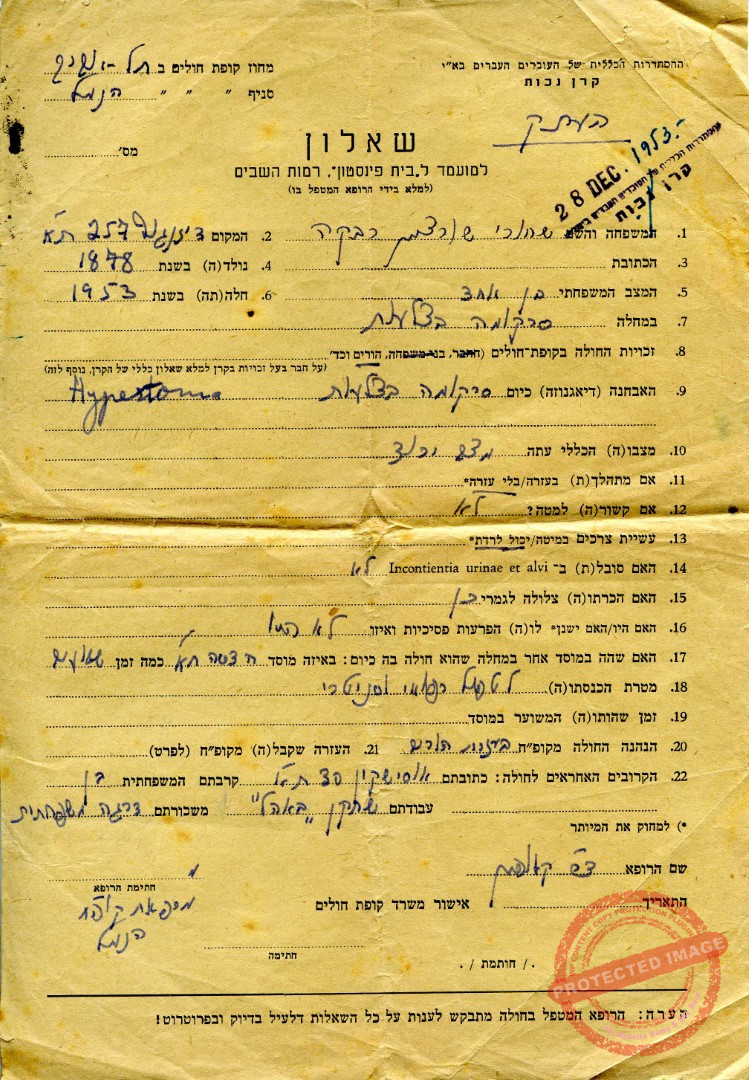 ההסתדרות הכללית של העובדים העברים בא"י
קרן נכות
מחוז קופת חולים ב תל-אביב
סניף " " " הנמל
העתק
שאלון
מס'
למועמד ל"בית פינסטון", רמות השבים
(למלא בידי הרופא המטפל בו)
28 DEC. 1953
קרן נכות
1. המשפחה והשם שחורי שורצמן רבקה 2. המקום דיזנגוף 257 ת"א
3. הכתובת 4. נולד(ה) בשנת 1878
5. המצב המשפחתי בן אחד 6. חלה(תה) בשנת 1953
7. במחלה סרקומה בצלעות
8. זכויות החולה בקופת-חולים (חבר, בני משפחה, הורים וכד'
(על חבר בעל זכויות בקרן למלא שאלון כללי של הקרן, נוסף לזה)
9. האבחנה (דיאגנוזה) כיום סרקומה בצלעות
10. מצבו(ה) הכללי עתה
11. אם מתהלך(ת) בעזרה/בלי עזרה*
12. אם קשור(ה) למטה? לא
13. עשיית צרכים במיטה/יכול לרדת*
14. האם סובל(ת) ב- Incontientia urinae et alvi לא
15. האם הכרתו(ה) צלולה לגמרי כן
16. האם היו/האם ישנן* לו(ה) הפרעות פסיכיות ואיזו לא היו
17. האם שהה במוסד אחר במחלה שהוא חולה בה כיום: באיזה מוסד הדסה ת"א כמה זמן שבועיים
18. מטרת הכנסתו(ה) לטפול רפואי וסניטרי
19. זמן שהותו(ה) המשוער במוסד
20. הנהנה החולה מקופ"ח בזכות הורים 21. העזרה שקבל(ה) מקופ"ח (לפרט)
22. הקרובים האחראים לחולה: כתובתם אוסישקין ת"א קרבתם המשפחתית בן
עבודתם שחקן "באהל" משכורתם דרגה משפחתית
*) למחוק את המיותר
שם הרופא ד"ר קאופמן
חתימת הרופא
מרפאת קופ"ח
הנמל
התאריך אישור משרד קופת חולים
חתימה
./ חותמת /.
הערה: הרופא המטפל בחולה מתבקש לענות על כל השאלות דלעיל בדיוק ובפרוטרוט!
CONTENT COPY PROTECTION PLUGIN
PROTECTED IMAGE